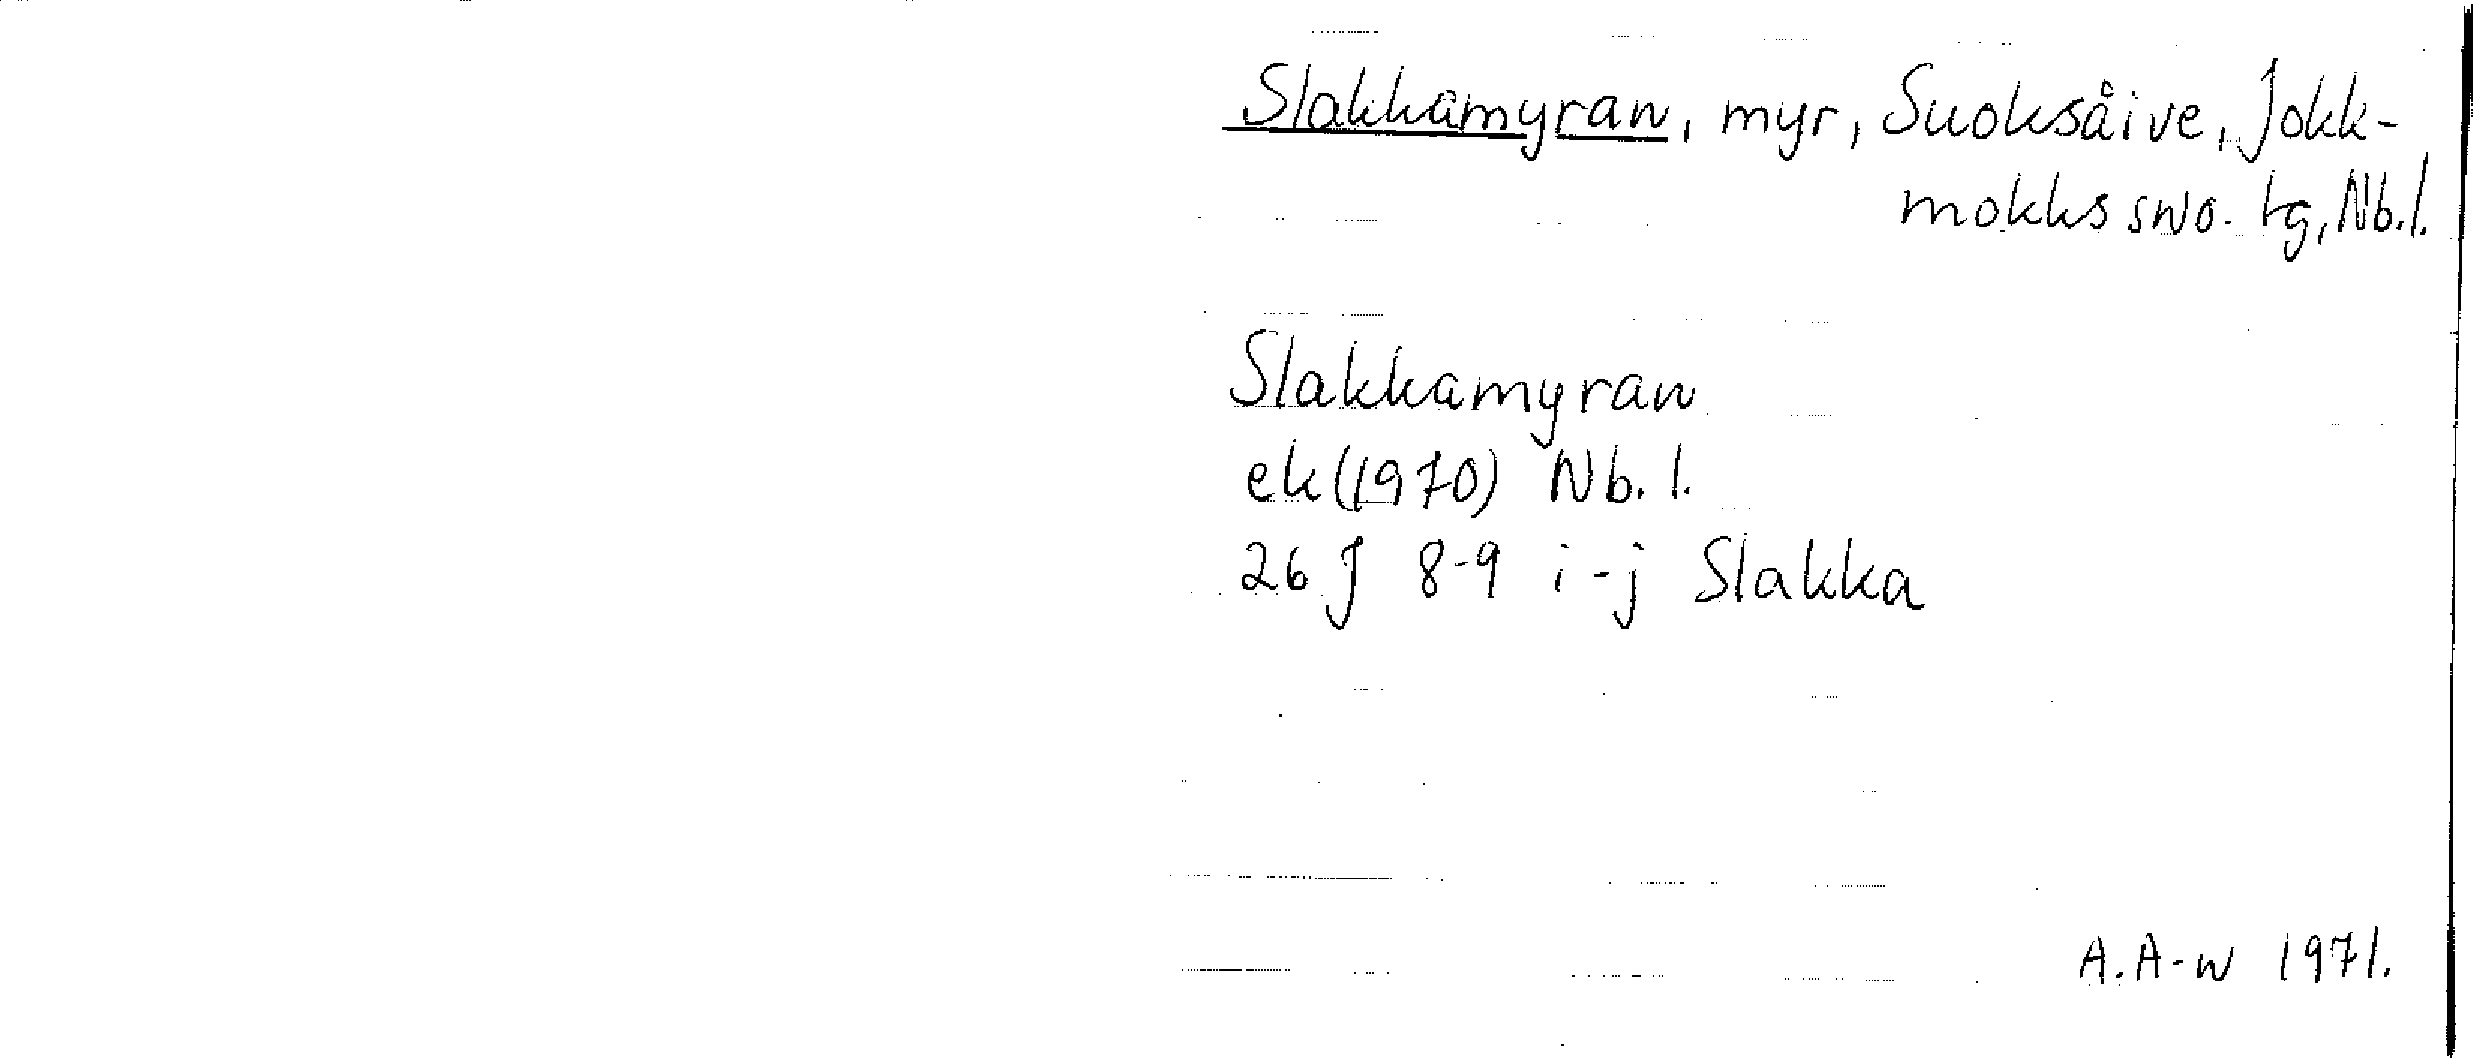 Slakkamyran, myr, Suoksåive, Jokk-
mokks sno. tg, Nb.l.
Slakkamyran
ek (1970) Nb. l.
26 J 8-9 i-j Slakka
A. A-n 1971.